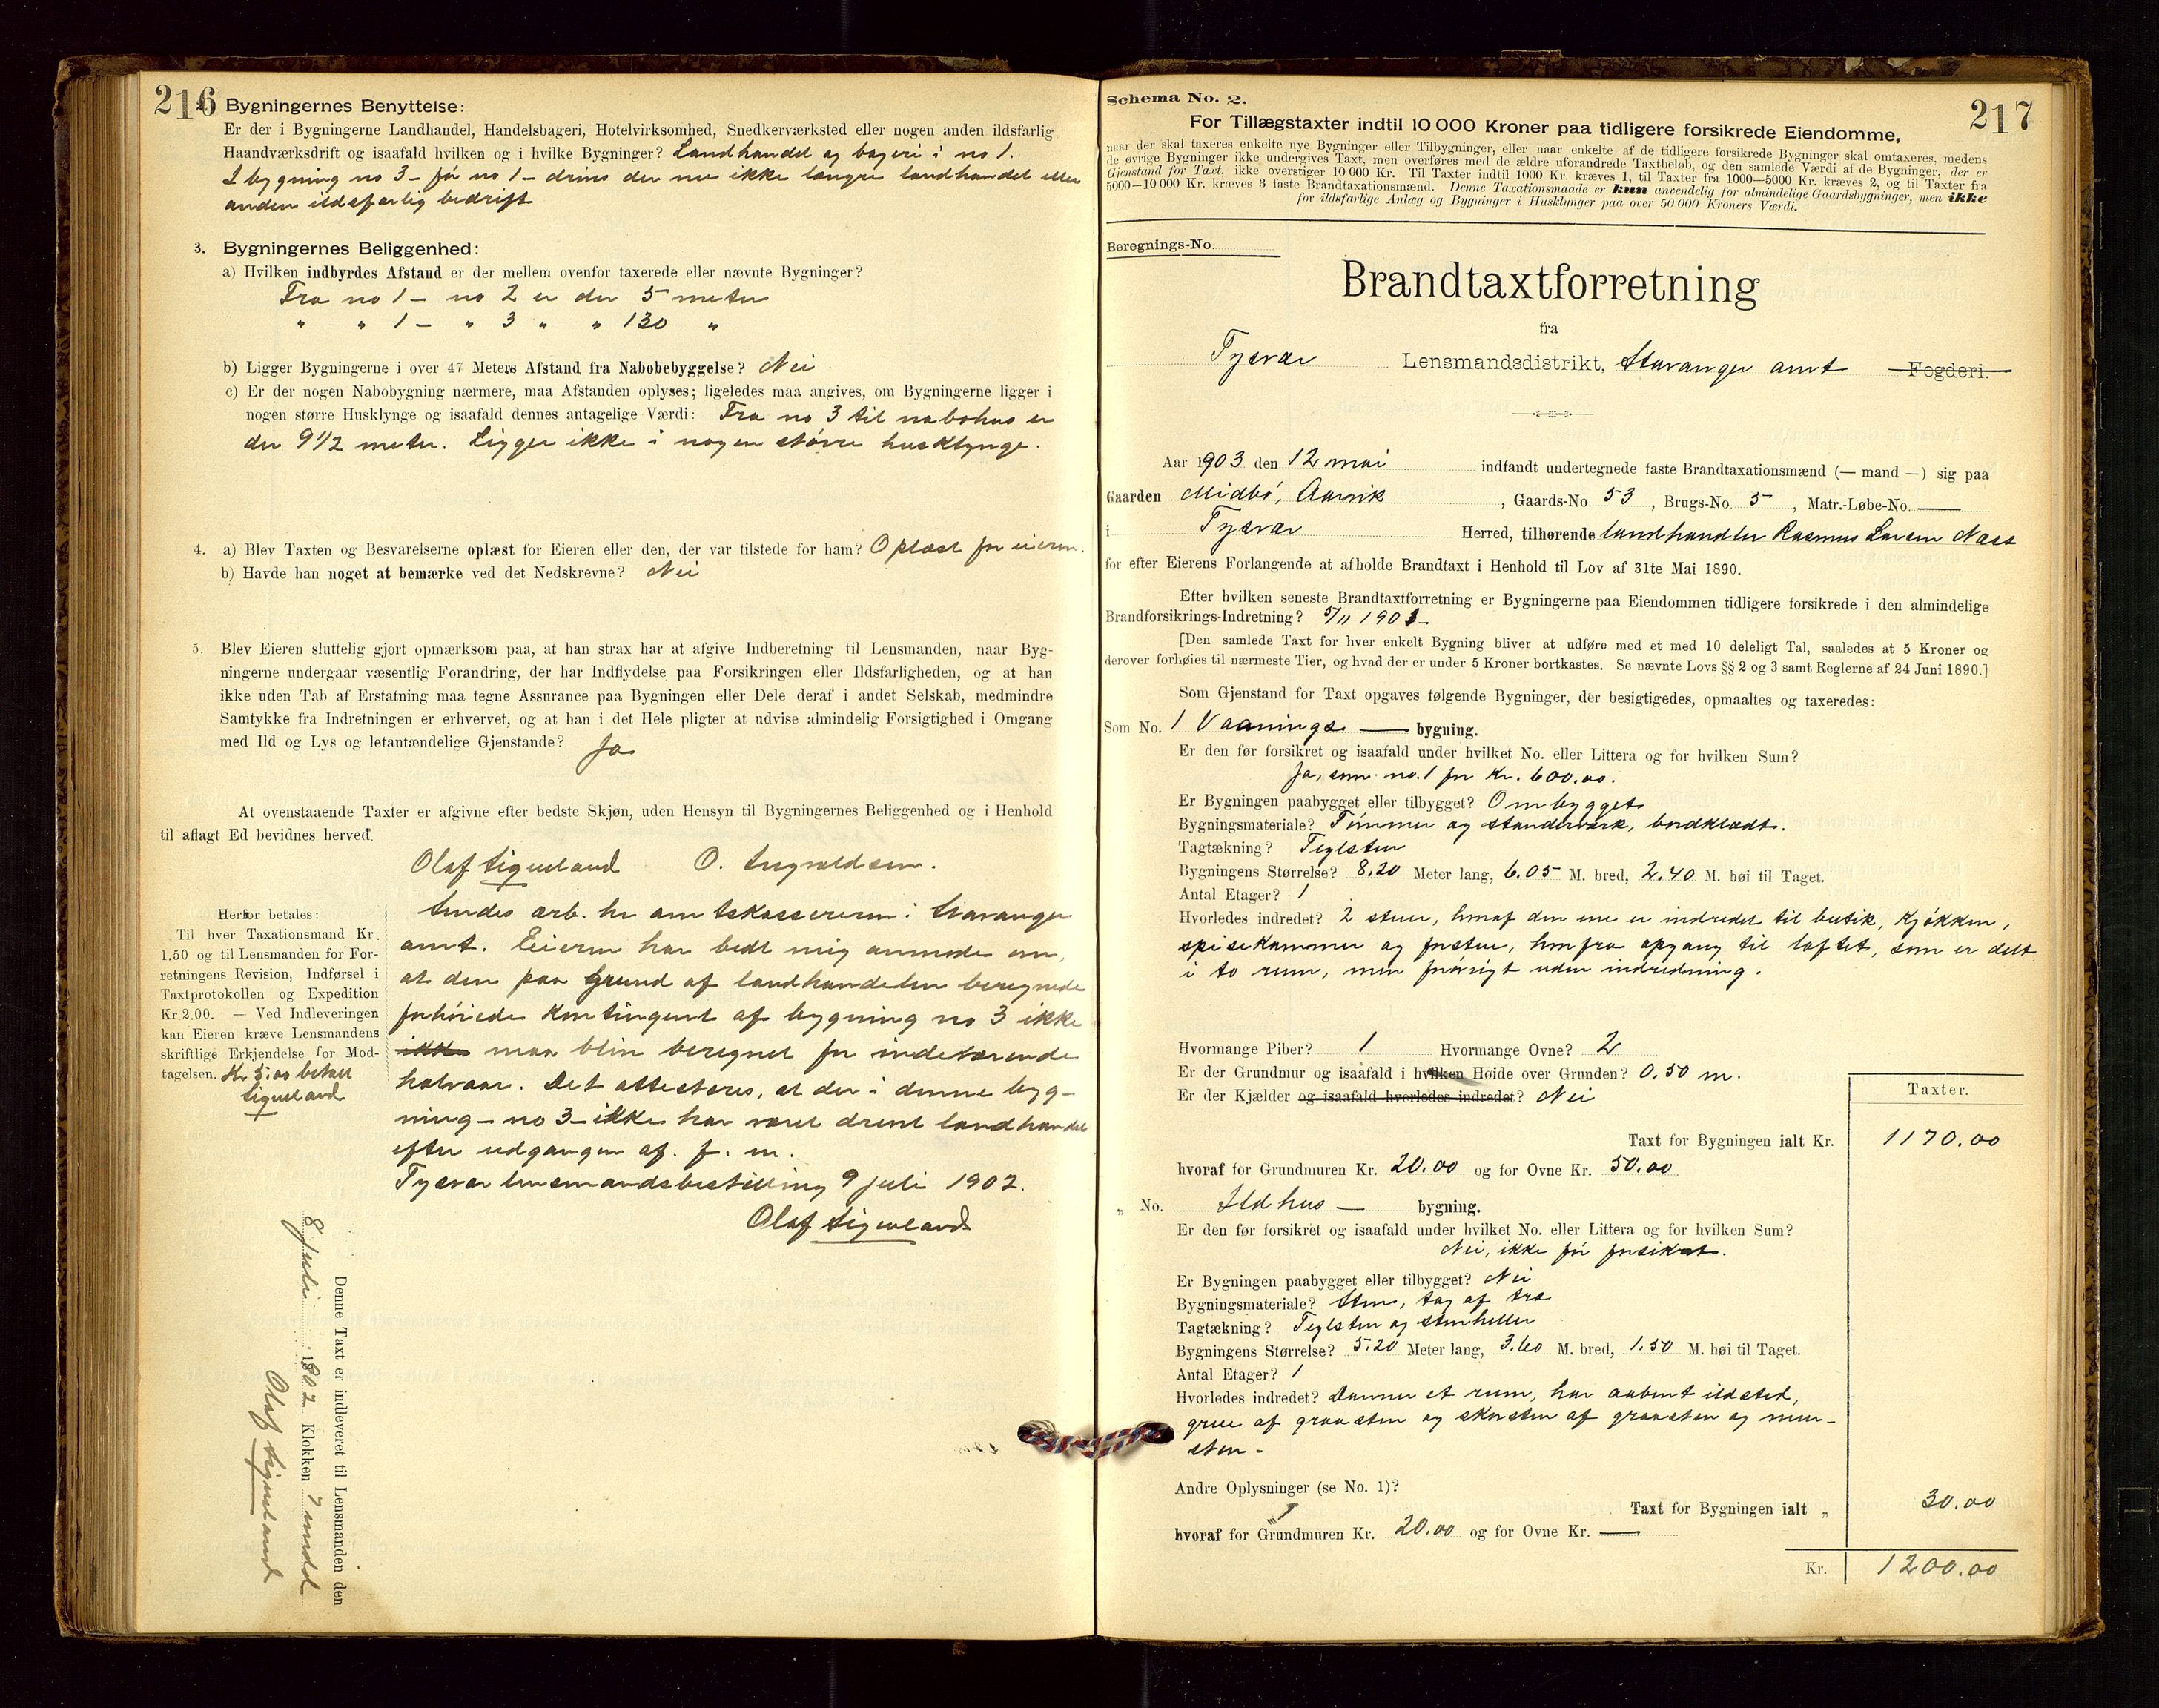 216
Bygningernes Benyttelse:
Er der i Bygningerne Landhandel, Handelsbageri, Hotelvirksomhed, Snedkerværksted eller nogen anden ildsfarlig
Haandværksdrift og isaafald hvilken og i hvilke Bygninger? Landhandel og bageri i no 1.
I bygning no 3 – før no 1 – drives der nu ikke længre landhandel eller
anden ildsfarlig bedrift
3. Bygningernes Beliggenhed:
a) Hvilken indbyrdes Afstand er der mellem ovenfor taxerede eller nævnte Bygninger?
Fra no 1 – no 2 er der 5 meter
" " 1 – " 3 " " 130 "
b) Ligger Bygningerne i over 47 Meters Afstand fra Nabobebyggelse? Nei
c) Er der nogen Nabobygning nærmere, maa Afstanden oplyses; ligeledes maa angives, om Bygningerne ligger i
nogen større Husklynge og isaafald dennes antagelige Værdi: Fra no 3 til nabohus er
der 9 1/2 meter. Ligger ikke i nogen større husklynge.
4. a) Blev Taxten og Besvarelserne oplæst for Eieren eller den, der var tilstede for ham? Oplæst for eieren.
b) Havde han noget at bemærke ved det Nedskrevne? Nei
5. Blev Eieren sluttelig gjort opmærksom paa, at han strax har at afgive Indberetning til Lensmanden, naar Byg-
ningerne undergaar væsentlig Forandring, der har Indflydelse paa Forsikringen eller Ildsfarligheden, og at han
ikke uden Tab af Erstatning maa tegne Assurance paa Bygningen eller Dele deraf i andet Selskab, medmindre
Samtykke fra Indretningen er erhvervet, og at han i det Hele pligter at udvise almindelig Forsigtighed i Omgang
med Ild og Lys og letantændelige Gjenstande? Ja
At ovenstaaende Taxter er afgivne efter bedste Skjøn, uden Hensyn til Bygningernes Beliggenhed og i Henhold
til aflagt Ed bevidnes herved.
Olaf Sigueland O. Ingvaldsen.
Herfor betales:
Til hver Taxationsmand Kr.
1.50 og til Lensmanden for For-
retningens Revision, Indførsel i
Taxtprotokollen og Expedition
Kr. 2.00. — Ved Indleveringen
kan Eieren kræve Lensmandens
skriftlige Erkjendelse for Mod-
tagelsen. Kr 5.00 betalt
Sigueland
Sendes ærb. hr amtskassereren i Stavanger
amt. Eieren har bedt mig anmode om,
at den paa Grund af landhandelen beregnede
forhøiede Kontingent af bygning no 3 ikke
ikke maa blive beregnet for indeværende
halvaar. Det attesteres, at der i denne byg-
ning – no 3 – ikke har været drevet landhandel
efter udgangen af f. m.
Tysvær lensmandsbestilling 9 juli 1902.
Olaf Sigueland
Denne Taxt er indleveret til Lensmanden den
8 juli 1902 Klokken 7 middag
Olaf Sigueland
Schema No. 2.
217
For Tillægstaxter indtil 10 000 Kroner paa tidligere forsikrede Eiendomme,
naar der skal taxeres enkelte nye Bygninger eller Tilbygninger, eller naar enkelte af de tidligere forsikrede Bygninger skal omtaxeres, medens
de øvrige Bygninger ikke undergives Taxt, men overføres med de ældre uforandrede Taxtbeløb, og den samlede Værdi af de Bygninger, der er
Gjenstand for Taxt, ikke overstiger 10 000 Kr. Til Taxter indtil 1000 Kr. kræves 1, til Taxter fra 1000—5000 Kr. kræves 2, og til Taxter fra
5000—10 000 Kr. kræves 3 faste Brandtaxationsmænd. Denne Taxationsmaade er kun anvendelig for almindelige Gaardsbygninger, men ikke
for ildsfarlige Anlæg og Bygninger i Husklynger paa over 50 000 Kroners Værdi.
Beregnings-No.
Brandtaxtforretning
fra
Tysvær Lensmandsdistrikt, Stavanger amt Fogderi.
Aar 1903 den 12 mai indfandt undertegnede faste Brandtaxationsmænd (— mand —) sig paa
Gaarden Midbø, Aarvik, Gaards-No. 53, Brugs-No. 5, Matr.-Løbe-No. —
i Tysvær Herred, tilhørende landhandler Rasmus Larsen Næs
for efter Eierens Forlangende at afholde Brandtaxt i Henhold til Lov af 31te Mai 1890.
Efter hvilken seneste Brandtaxtforretning er Bygningerne paa Eiendommen tidligere forsikrede i den almindelige
Brandforsikrings-Indretning? 5/11 1901
[Den samlede Taxt for hver enkelt Bygning bliver at udføre med et med 10 deleligt Tal, saaledes at 5 Kroner og
derover forhøies til nærmeste Tier, og hvad der er under 5 Kroner bortkastes. Se nævnte Lovs §§ 2 og 3 samt Reglerne af 24 Juni 1890.]
Som Gjenstand for Taxt opgaves følgende Bygninger, der besigtigedes, opmaaltes og taxeredes:
Som No. 1 Vaanings — bygning.
Er den før forsikret og isaafald under hvilket No. eller Littera og for hvilken Sum?
Ja, som no. 1 for Kr. 600.00.
Er Bygningen paabygget eller tilbygget? Ombygget
Bygningsmateriale? Tømmer og standerværk, bordklædt.
Tagtækning? Teglsten
Bygningens Størrelse? 8,20 Meter lang, 6.05 M. bred, 2.40 M. høi til Taget.
Antal Etager? 1
Hvorledes indredet? 2 stuer, hvoraf den ene er indredet til butik, kjøkken,
spisekammer og forstue, hvorfra opgang til loftet, som er delt
i to rum, men forøvrigt uden indredning.
Hvormange Piber? 1 Hvormange Ovne? 2
Er der Grundmur og isaafald i hvilken Høide over Grunden? 0.50 m.
Er der Kjælder og isaafald hvorledes indredet? Nei
Taxter.
Taxt for Bygningen ialt Kr. 1170.00
hvoraf for Grundmuren Kr. 20.00 og for Ovne Kr. 50.00
" No. Ildhus — bygning.
Er den før forsikret og isaafald under hvilket No. eller Littera og for hvilken Sum?
Nei, ikke før forsikret.
Er Bygningen paabygget eller tilbygget? Nei
Bygningsmateriale? Sten, tag af træ
Tagtækning? Teglsten og stenheller
Bygningens Størrelse? 5.20 Meter lang, 3.60 M. bred, 1.50 M. høi til Taget.
Antal Etager? 1
Hvorledes indredet? Danner et rum, har aabent ildsted,
grue af graasten og skorsten af graasten og mur-
sten -
Andre Oplysninger (se No. 1)?
Taxt for Bygningen ialt „ 30.00
hvoraf for Grundmuren Kr. 20.00 og for Ovne Kr. —
Kr. 1200.00